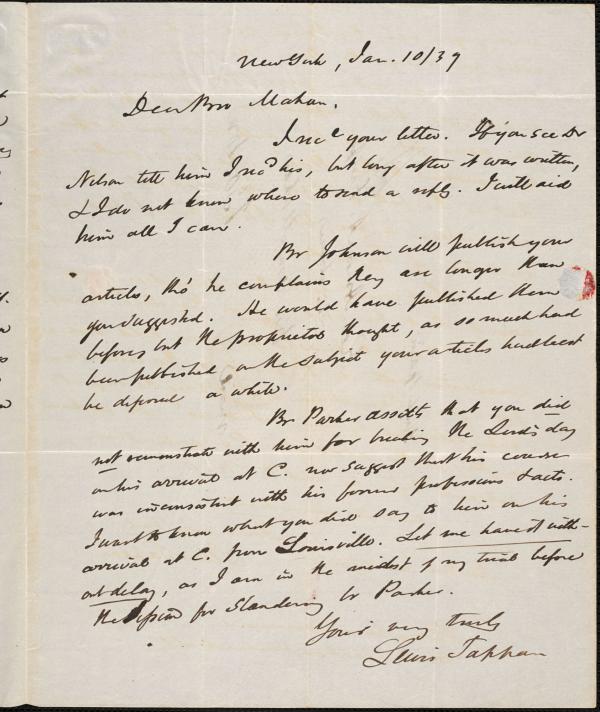 New York, Jan. 10/39
Dear Bro Mahan,
I recd your letter. If you see Dr
Nelson tell him I recd his, but long after it was written,
& I do not know where to send a reply. I will aid
him all I can.
Br Johnson will publish your
articles, tho' he complains they are longer than
you suggested. He would have published them
before but the proprietors thought, as so much had
been published on the subject your articles had best
be deferred a while.
Br. Parker asserts that you did
not remonstrate with him for breaking the Lord's day
on his arrival at C. nor suggest that his course
was inconsistent with his former professions & acts.
I want to know what you did say to him on his
arrival at C. from Louisville. Let me have it with-
out delay, as I am in the midst of my trial before
the Session for Slandering br Parker.
Yours very truly
Lewis Tappan